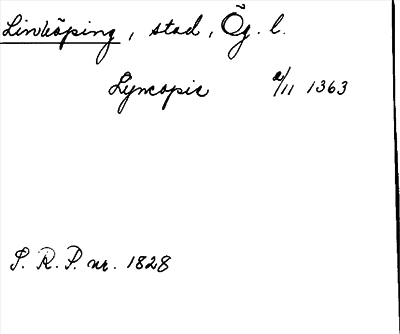 Linköping, stad, Ög. l.
Lyncopie 2/11 1363
S. R. P. nr. 1828